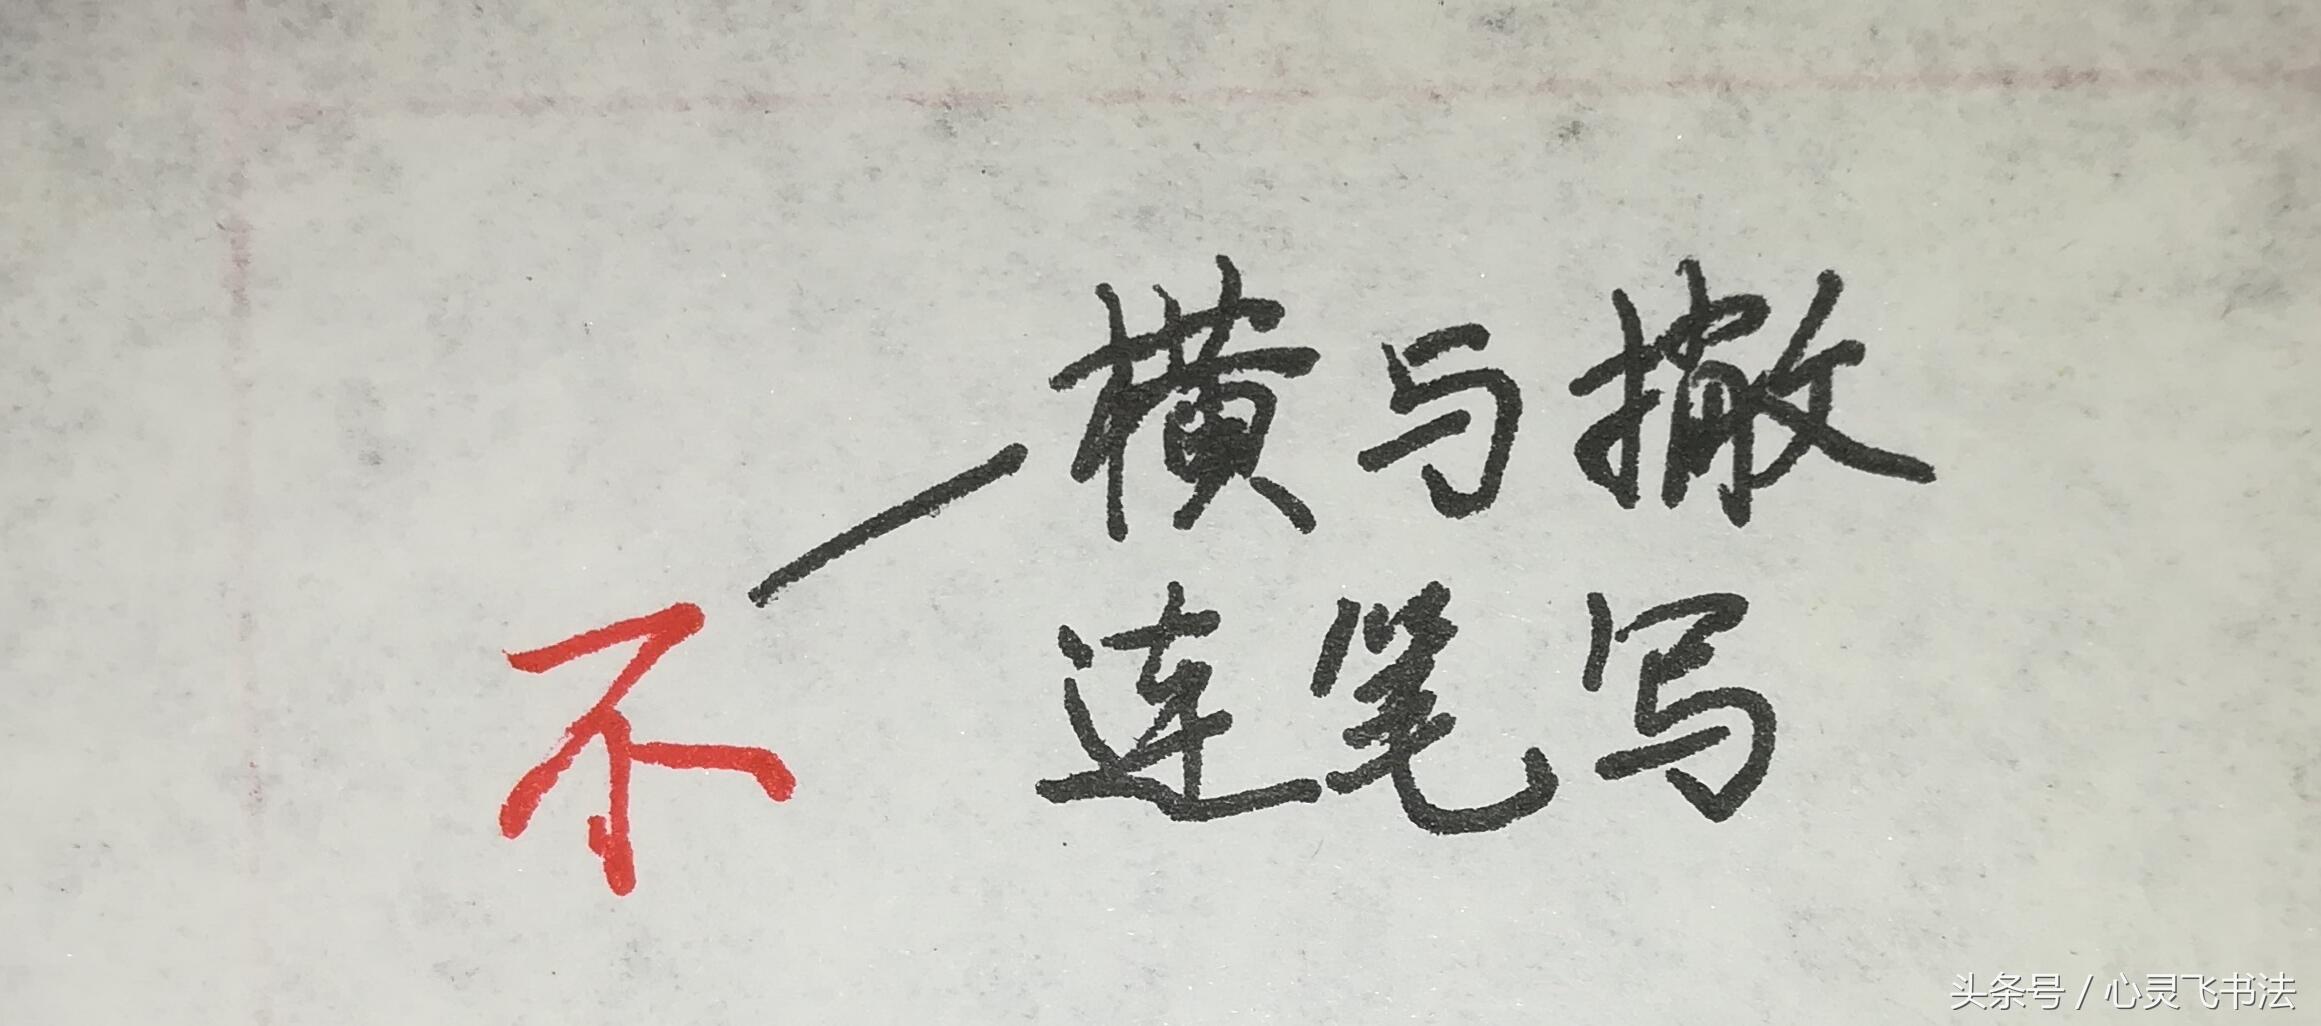 横与撇
连笔写
不
头条号 / 心灵飞书法